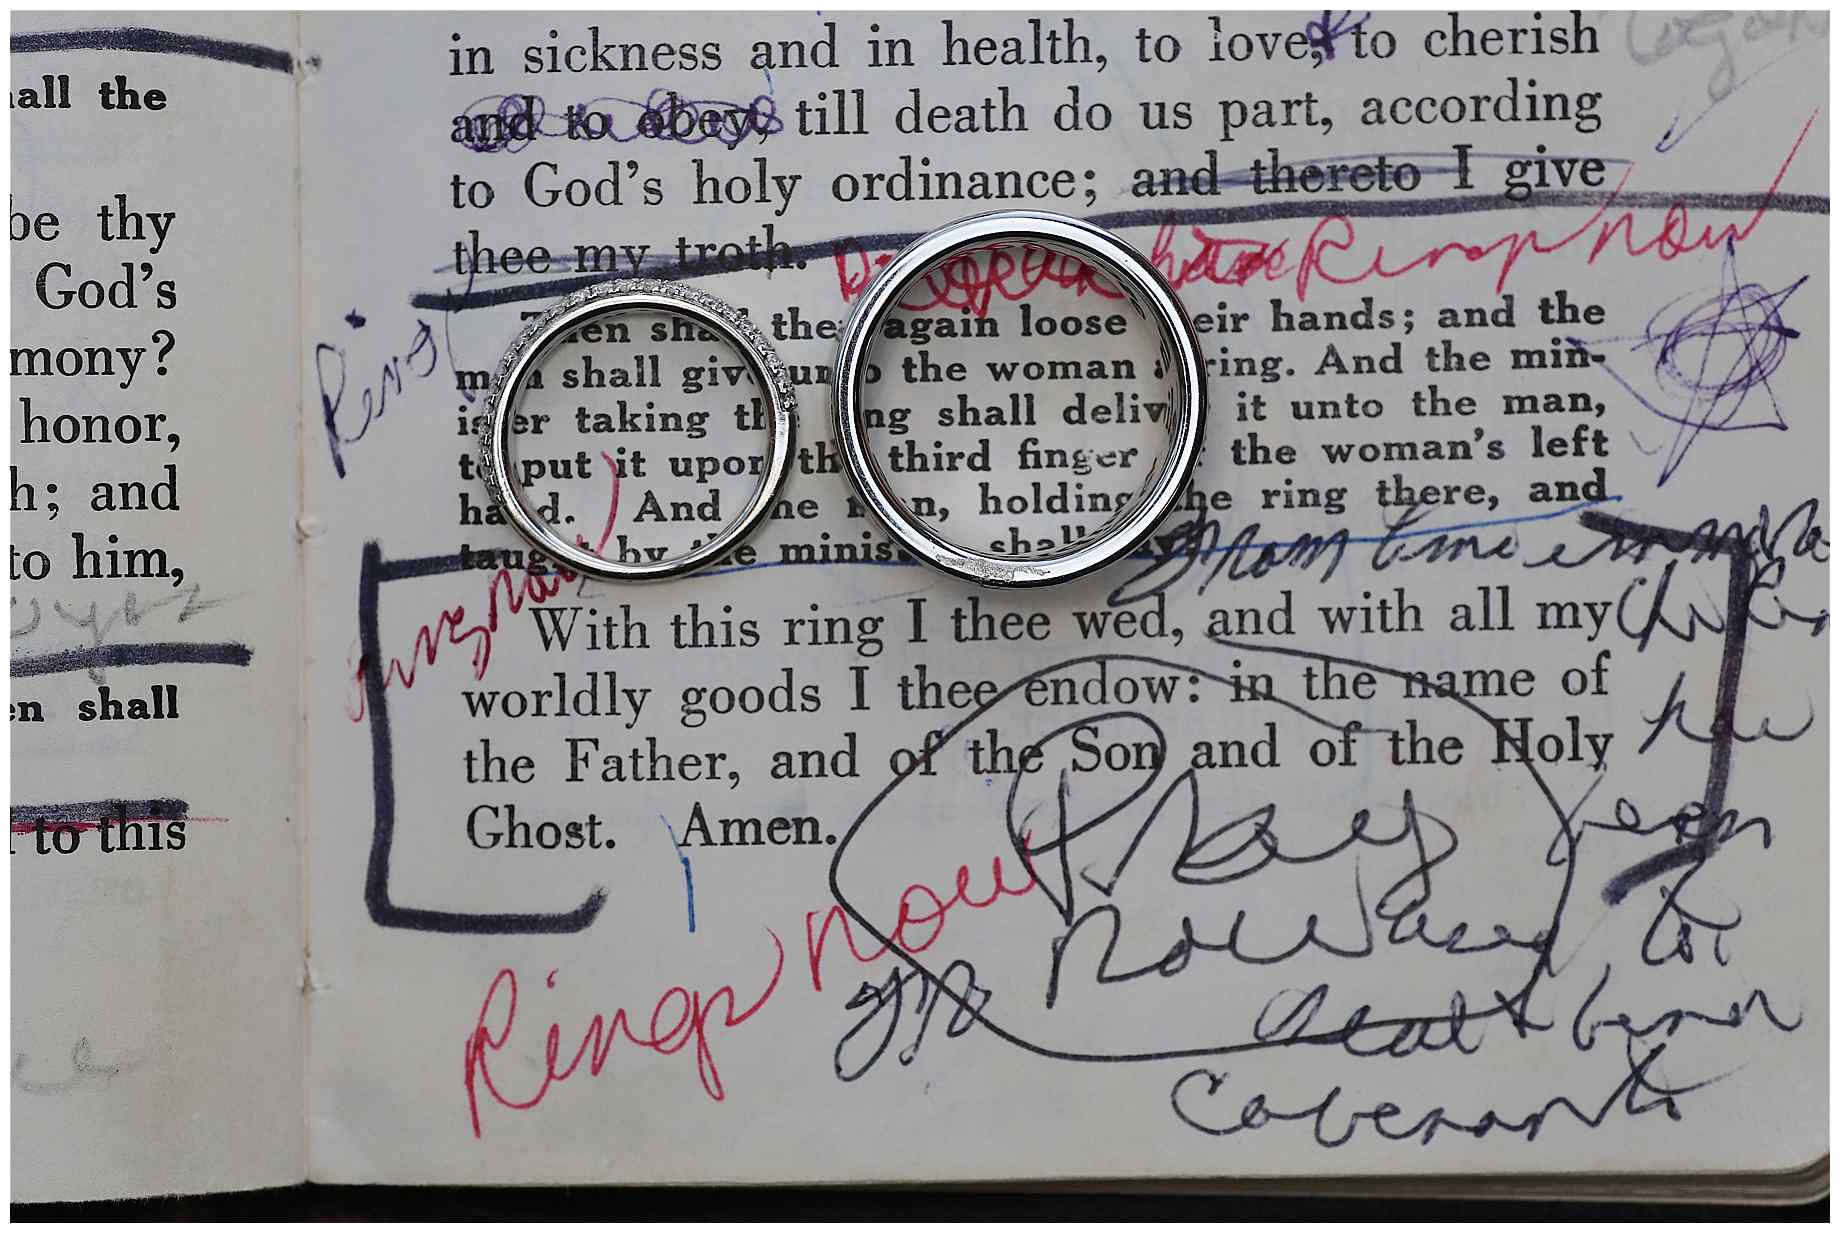 all the
be thy
God's
mony?
honor,
h; and
to him,
en shall
to this
in sickness and in health, to love, to cherish
and to obey, till death do us part, according
to God's holy ordinance; and thereto I give
thee my troth.
Ring now
Ring
Then shall they again loose their hands; and the
man shall give unto the woman a ring. And the min-
ister taking the ring shall deliver it unto the man,
to put it upon the third finger of the woman's left
hand. And the man, holding the ring there, and
taught by the minister, shall say
From time immora
With this ring I thee wed, and with all my
worldly goods I thee endow: in the name of
the Father, and of the Son and of the Holy
Ghost. Amen.
Pray
now
Rings now
to
seal
covenants